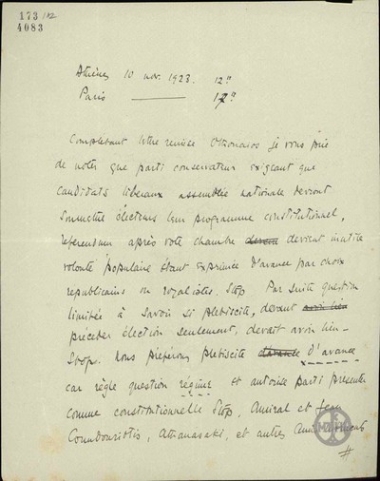 173/102
4083
Athènes 10 nov. 1923. 12"
Paris 12"
Complétant lettre remise Othonaios je vous prie
de noter que parti conservateur exigeant que
candidats libéraux assemblée nationale devront
soumettre électeurs leur programme constitutionnel,
referendum après vote chambre devient inutile
volonté populaire étant exprimée d'avance par choix
republicains ou royalistes. Stop Par suite question
limitée à savoir si plebiscite, devant avoir lieu
précéder élection seulement, devait avoir lieu.
Stop. Nous préférons plebiscite d'avance d'avance
car règle question régime et autorise parti présenter
comme constitutionnelle Stop, Amiral et
Coundouriotis, Athanasaki, et autres
#